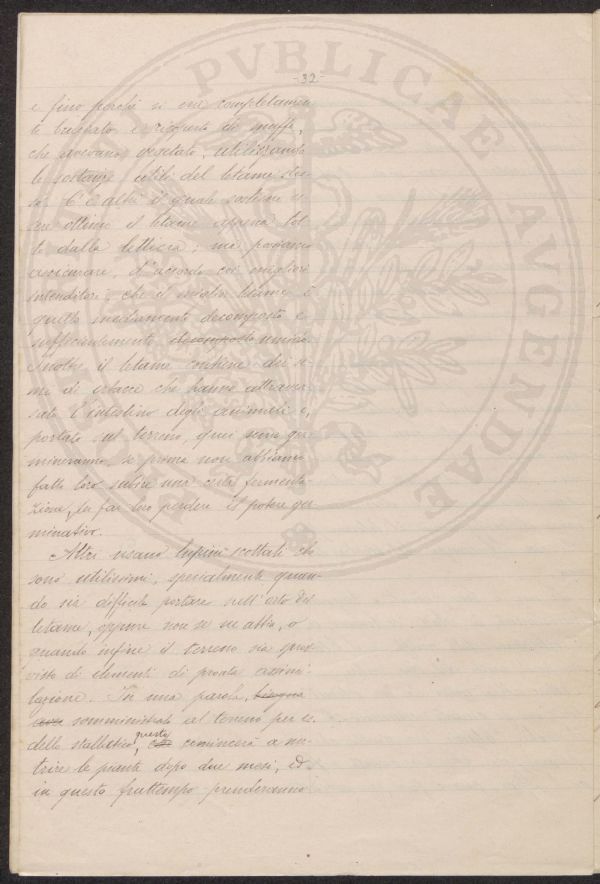 -32-
e fino perchè si era completamen
te bruciato e ricoperto di muffe,
che avevano vegetato, utilizzando
le sostanze utili del letame stes
so. C'è altri il quale sostiene es
sere ottimo il letame appena tol
to dalla lettiera; ma possiamo
assicurare, d'accordo coi migliori
intenditori, che il miglior letame è
quello mediamente decomposto e
sufficientemente decomposto umido.
Inoltre il letame contiene dei se
mi di erbacce che hanno attraver
sato l'intestino degli animali e,
portato sul terreno, quei semi ger
mineranno, se prima non abbiamo
fatto loro subire una certa fermenta
zione, da far loro perdere il potere ger
minativo.
Altri usano lupini scottati che
sono utilissimi, specialmente quan
do sia difficile portare nell'orto del
letame, oppure non se ne abbia, o
quando infine il terreno sia sprov
visto di elementi di pronta assimi
lazione. In una parola, bisogna
somministrato al terreno per es.
dello stallatico, questo comincerà a nu
trire le piante dopo due mesi, ed
in questo frattempo prenderanno
PVBLICAE
AVGENDAE